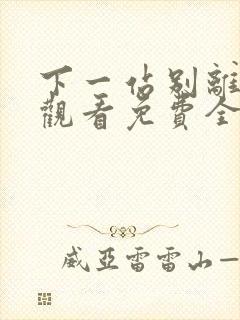 下一佔别離
觀看免費全
威亞雷雷山一